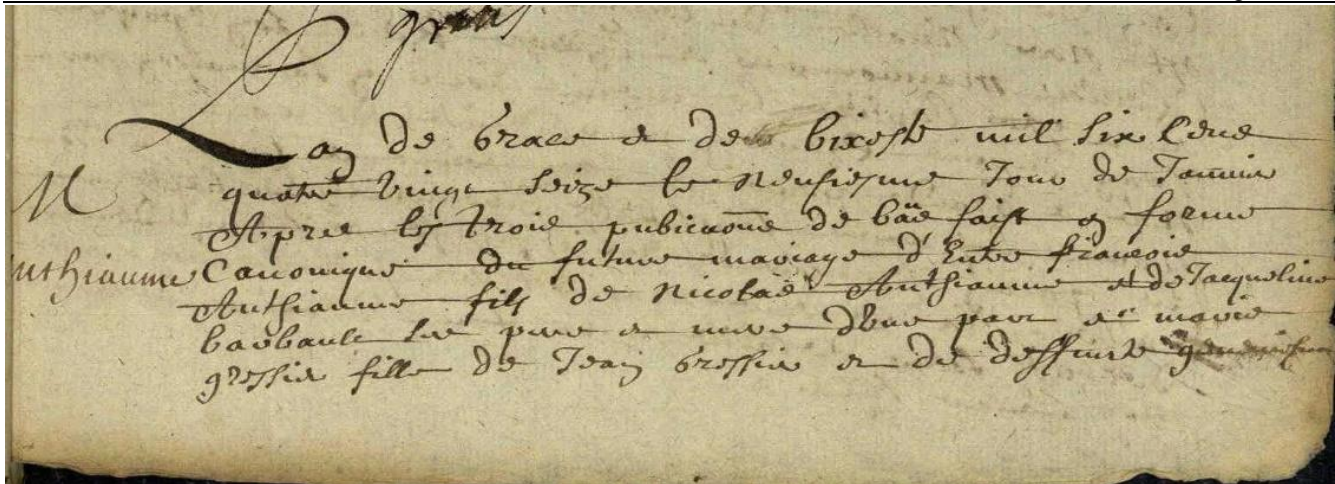 Lan de Grace et de bixeste mil six Cens
M
quatre Vingt seize le neufiesme Jour de Januier
Apres les trois publicaõns de bãs faist en forme
Anthiaume Canonique du future mariage d'Entre francois
Anthiaume fils de Nicolas Anthiaume et de Jacqueline
barbault ses pere et mere dune part et marie
gressier fille de Jean Gressier et de deffunte